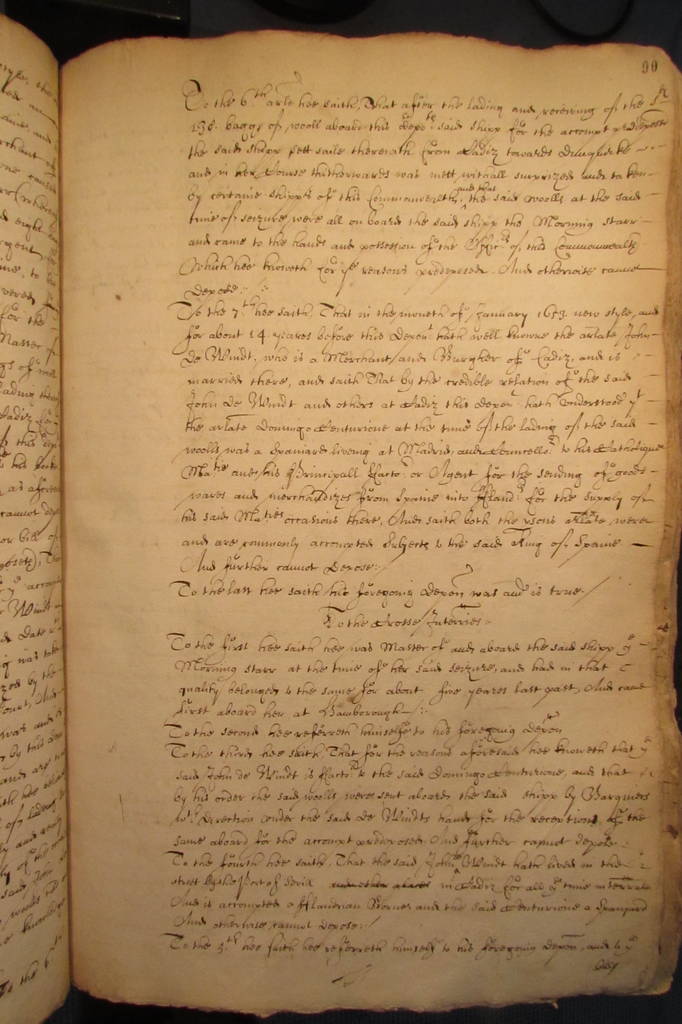 99
To the 6.th arle hee saith, That after the lading and receiving of the sd
138. baggs of wooll aboard this depots said shipp for the accompt predeposed
the said shipp sett saile therewith from Cadiz towards Dunquirke
and in her Course thitherwards was mett withall surprized and taken
by certaine shipps of this Commonwealth, and that the said woolls at the said
time of seizure were all on board the said shipp the Morning starr
and came to the hands and possession of the of this Commonwealth
Which hee knoweth for ye reasons predeposed. And otherwise cannot
depose:-
To the 7.th hee saith, That in the moneth of January 1653. new style, and
for about 14 yeares before this Depont hath well knowne the arlate John
De Windt, who is a Merchant and Burgher of Cadiz, and is
married there, and saith That by the credible relation of the said
John De Windt and others at Cadiz this depont hath understood yt
the arlate Domingo Centurione at the time of the lading of the said
woolls, was a Spaniard living at Madrid, and Councellor to his Catholique
Matie and his Principall Factor or Agent for the sending of goods
wares and merchandizes from Spaine into Flandrs for the supply of
his said Maties occasions there, And saith both the arlate were
and are commonly accompted Subjects to the said King of Spaine
And further cannot Depose:/
To the last hee saith his foregoing Depon was and is true./
To the Crosse Interries.
To the first hee saith hee was Master of and aboard the said shipp ye
Morning starr at the time of her said seizure, and had in that
quality belonged to the same for about five yeares last past, And came
first aboard her at :-
To the second hee referreth himselfe to his foregoing Depon
To the third hee saith That for the reasons aforesaid hee knoweth that ye
said John de Windt is Factor to the said Domingo Centurione, and that
by his order the said woolls were sent aboard the said shipp by Barquiers
wth direction under the said De Windts hand for the receptione of the
same aboard for the accompt predeposed And further cannot depose:
To the fourth hee saith That the said John de Windt hath lived in the
street in Cadiz for all ye time interrate
And is accompted a Flandrian Borne and the said Centurione a Spanyard
And otherwise cannot depose:/
To the 5.th hee saith hee referreth himself to his foregoing Depon, and to ye